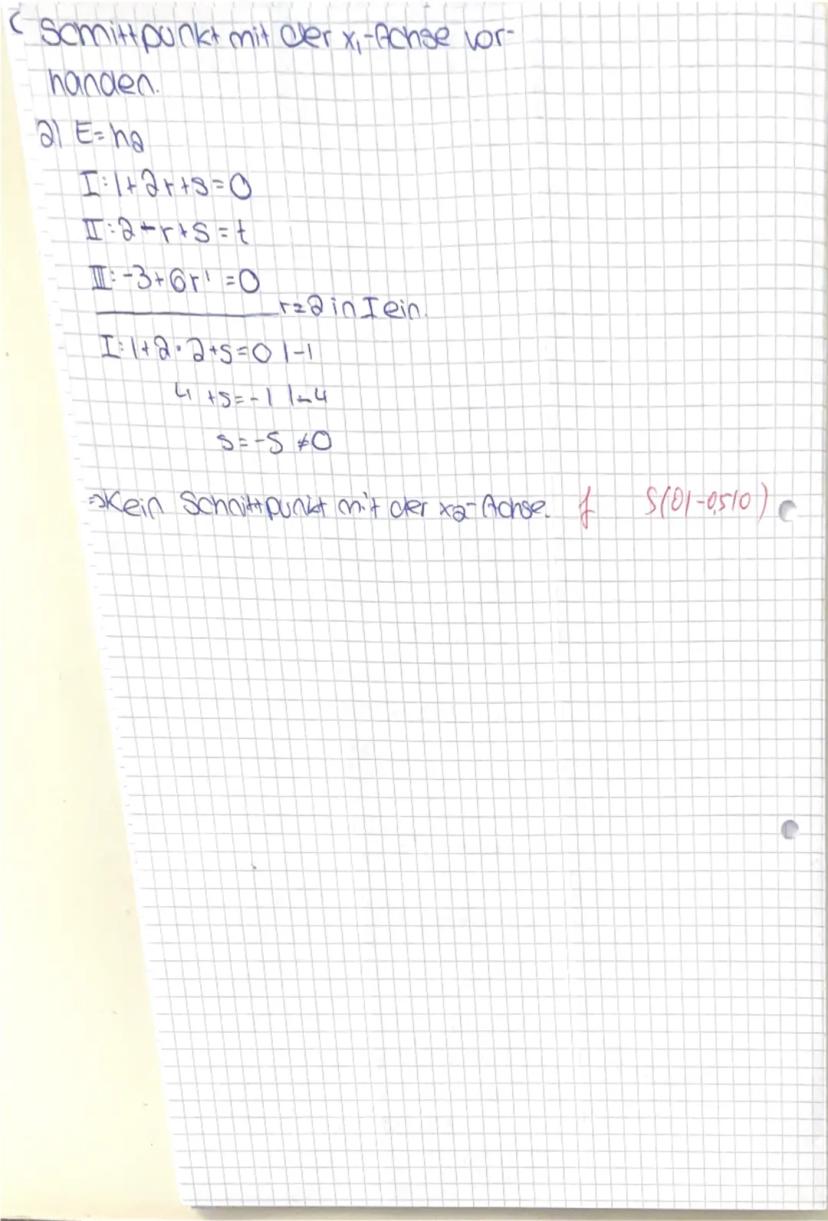 Schnittpunkt mit der x₁-Achse vor-
handen.
2) E=h2
I: 1+2r+s=0
II: 2-r+s=t
III: -3+6r =0
r=2 in I ein.
I: 1+2·2+s=0 |-1
4 +s=-1 |-4
s=-5 ≠0
⇒Kein Schnittpunkt mit der x2-Achse. f S(0|-0,5|0)